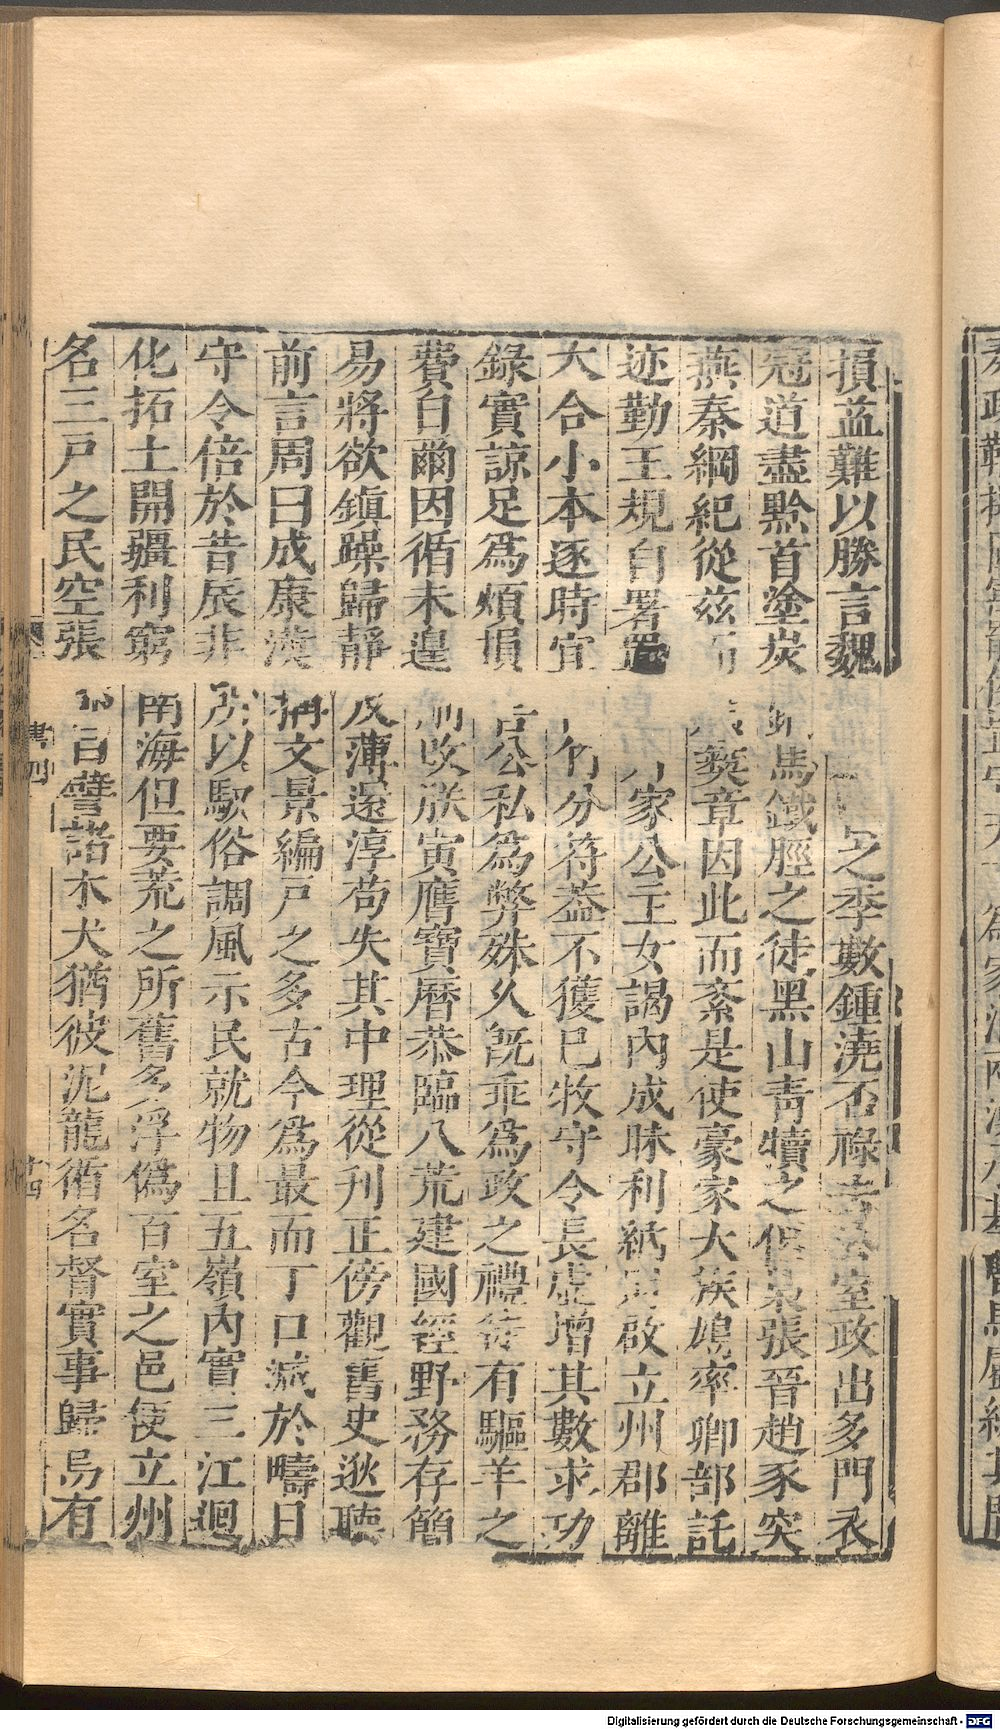 損益難以勝言魏之季數鍾澆否祿室政出多門衣
冠道盡黔首塗炭馬鐵脛之徒黑山青犢之侶張晉趙豕突
燕秦綱紀從茲而彝章因此而紊是使豪家大族鳩率鄉部託
迹勤王規自署置家公主女謁內成昧利納啟立州郡離
大合小本逐時宜竹分符蓋不獲已牧守令長虛增其數求功
錄實諒足為煩損害公私為弊殊久既乖為政之禮徒有驅羊之
費自爾因循未遑刪改朕寅膺寶曆恭臨八荒建國經野務存簡
易將欲鎮躁歸靜反薄還淳苟失其中理從刊正傍觀舊史逖聽
前言周曰成康漢稱文景編戶之多古今為最而丁口減於疇日
守令倍於昔辰非所以馭俗調風示民就物且五嶺內賓三江迴
化拓土開疆利窮南海但要荒之所舊多浮偽百室之邑便立州
名三戶之民空張郡目譬諸木犬猶彼泥龍循名督實事歸烏有
書四
十四
Digitalisierung gefördert durch die Deutsche Forschungsgemeinschaft - DFG